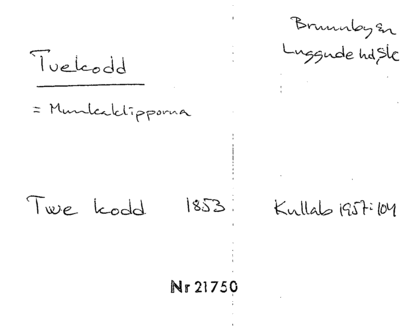 Brunnby sn
Luggude hd, Sk
Tvekodd
= Munkaklipporna
Twe kodd 1853 Kullab 1957:104
Nr 21750